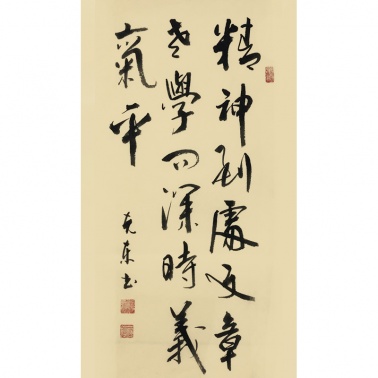 精神到處文章
老學问深時義
氣平
克东书